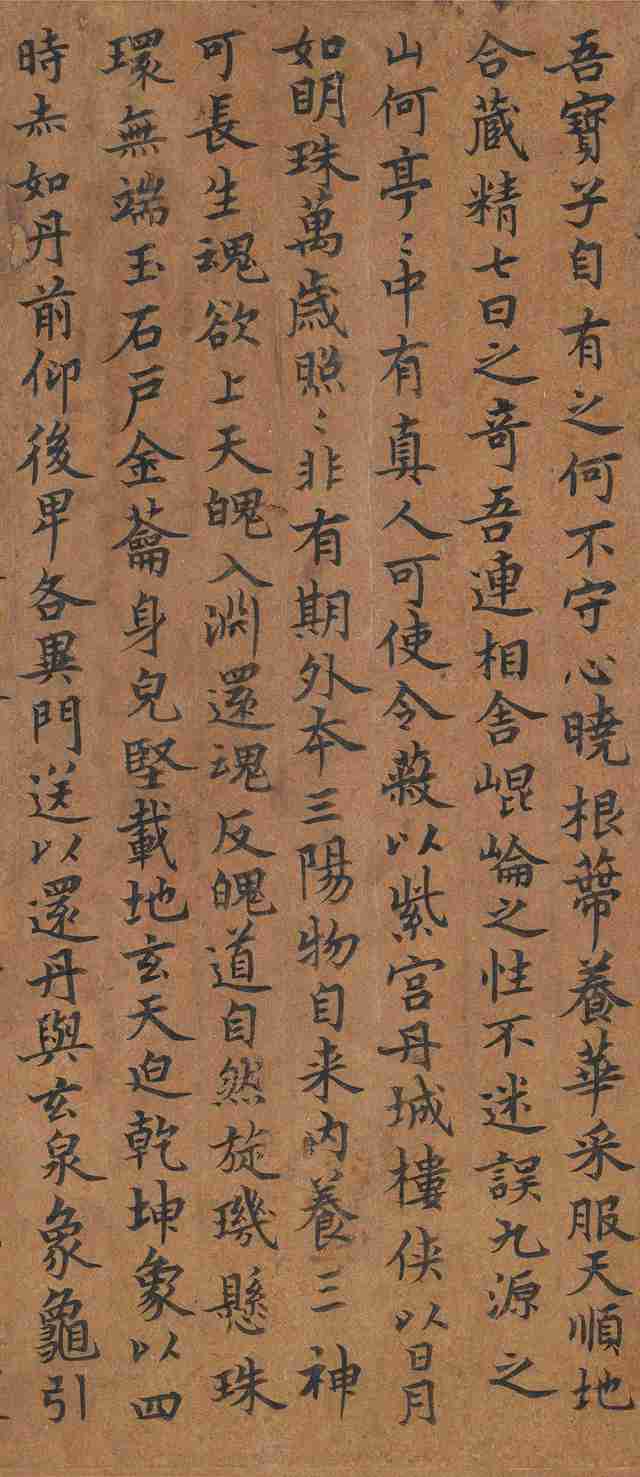 吾寶子自有之何不守心曉根蔕養華采服天順地
合蔵精七日之奇吾連相舎崐崘之性不迷誤九源之
山何亭〻中有真人可使令蔽以紫宫丹城樓俠以日月
如明珠萬歳照〻非有期外本三陽物自来内養三神
可長生魂欲上天魄入淵還魂反魄道自然旋璣懸珠
環無端玉石戸金蘥身皃堅載地玄天迫乾坤象以四
時赤如丹前仰後卑各異門送以還丹與玄泉象龜引